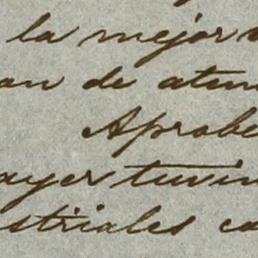 la mejor
an de aten
Aprobe
ayer tuvin
striales co